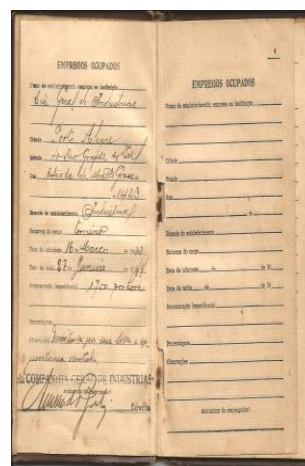 EMPREGOS OCUPADOS
Nome do estabelecimento empresa ou instituição
Cia Geral de Industrias
Cidade Porto Alegre
Estado do Rio Grande do Sul
Rua Estrada de Mato Grosso
Especie do estabelecimento Industrial
Natureza do cargo
Data da admissão 16 Março de 19
Data da saída 27 de Junho de 19
Remuneração (especificada) 1,700 por hora
Porcentagens
Observações
COMPANHIA GERAL DE INDUSTRIAS
Diretor
4
EMPREGOS OCUPADOS
Nome do estabelecimento empresa ou instituição
Cidade
Estado
Rua
Especie do estabelecimento
Natureza do cargo
Data da admissão de de 19
Data da saída de de 19
Remuneração (especificada)
Porcentagens
Observações
Assinatura do empregador